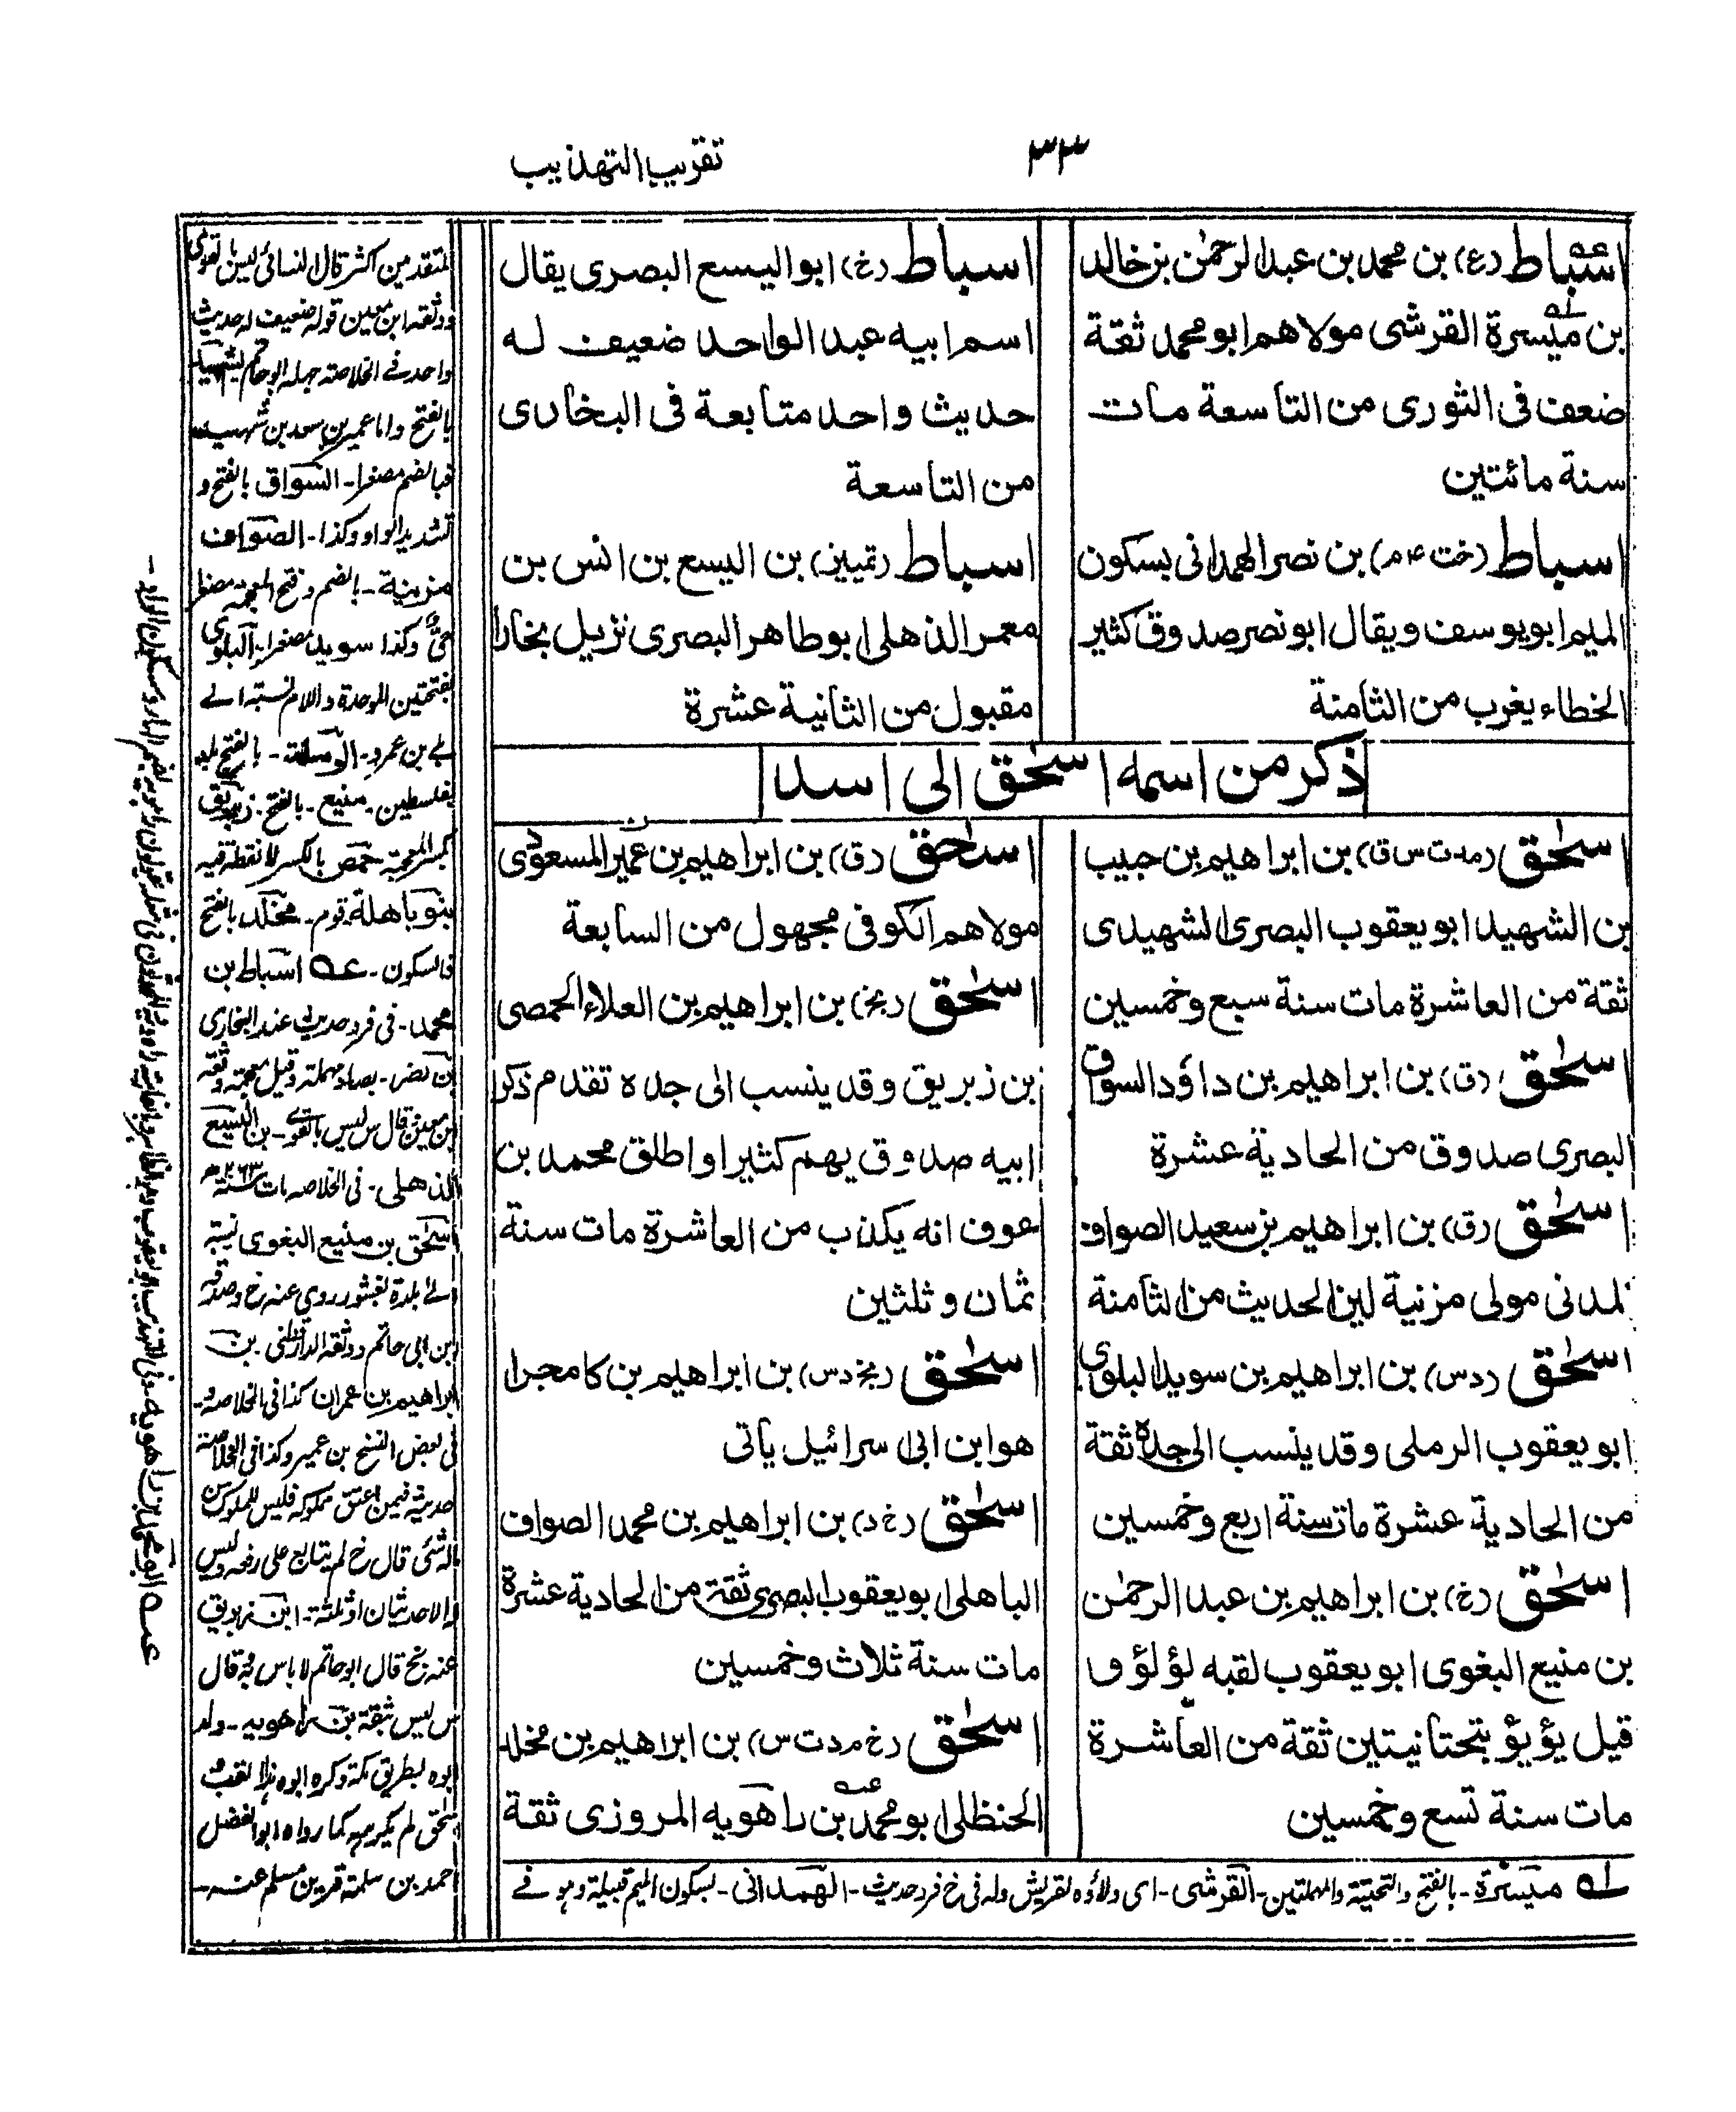 تقريب التهذيب
٣٣
اسباط (ع) بن محمد بن عبد الرحمٰن بن خالد
بن ميسرة القرشى مولاهم ابو محمد ثقة
ضعف فى الثورى من التاسعة مات
سنة مائتين
اسباط (خت م ۴) بن نصر الهمدانى بسكون
الميم ابو يوسف ويقال ابو نصر صدوق كثير
الخطاء يغرب من الثامنة
اسباط (خ) ابو اليسع البصرى يقال
اسم ابيه عبد الواحد ضعيف له
حديث واحد متابعة فى البخارى
من التاسعة
اسباط (تمييز) بن اليسع بن انس بن
معمر الذهلى ابو طاهر البصرى نزيل بخارا
مقبول من الثانية عشرة
ذكر من اسمه اسحٰق الى اسد
اسحٰق (مد ت س ق) بن ابراهيم بن حبيب
بن الشهيد ابو يعقوب البصرى الشهيدى
ثقة من العاشرة مات سنة سبع وخمسين
اسحٰق (ق) بن ابراهيم بن داؤد السواق
البصرى صدوق من الحادية عشرة
اسحٰق (ق) بن ابراهيم بن سعيد الصواف
المدنى مولى مزنية لين الحديث من الثامنة
اسحٰق (د س) بن ابراهيم بن سويد البلوى
ابو يعقوب الرملى وقد ينسب الى جده ثقة
من الحادية عشرة مات سنة اربع وخمسين
اسحٰق (خ) بن ابراهيم بن عبد الرحمٰن
بن منيع البغوى ابو يعقوب لقبه لؤلؤ و
قيل يؤيؤ بتحتانيتين ثقة من العاشرة
مات سنة تسع وخمسين
اسحٰق (ق) بن ابراهيم بن عمير المسعودى
مولاهم الكوفى مجهول من السابعة
اسحٰق (بخ) بن ابراهيم بن العلاء الحمصى
بن زبريق وقد ينسب الى جده تقدم ذكر
ابيه صدوق يهم كثيرا واطلق محمد بن
عوف انه يكذب من العاشرة مات سنة
ثمان وثلثين
اسحٰق (بخ د س) بن ابراهيم بن كامجرا
هو ابن ابى سرائيل ياتى
اسحٰق (خ د) بن ابراهيم بن محمد الصواف
الباهلى ابو يعقوب البصرى ثقة من الحادية عشرة
مات سنة ثلاث وخمسين
اسحٰق (خ م د ت س) بن ابراهيم بن مخلد
الحنظلى ابو محمد بن راهويه المروزى ثقة
له ميسرة - بالفتح والتحتية والمهملتين - القرشى - اى ولاؤه لقريش وله فى خ فرد حديث - الهمدانى - بسكون الميم قبيلة وهو فے
المتقدمين اكثر قال النسائى ليس بالقوى
ووثقه ابن معين قوله ضعيف له حديث
واحد فے الخلاصة جهله ابو حاتم الشهيد
بالفتح واما عمير بن سعد بن شهيد
فبالضم مصغرا - السواق بالفتح و
تشديد الواو وكذا - الصواف
مزينة - بالضم وفتح المعجمة مصغر
وكذا سويد مصغرا - البلوى
بفتحتين الموحدة واللام نسبة الے
بلے بن عمرو - الرملة - بالفتح بلد
بفلسطين - منيع - بالفتح - زبريق
بكسر المعجمة حمص بالكسر لا نقطة فيه
بنو باهلة قوم - مخلد بالفتح
فالسكون - عه اسباط بن
محمد - فى فرد حديث عند البخارى
بن نصر - بصاد مهملة وقيل معجمة وثقه
ابن معين قال س ليس بالقوے - بن اليسع
الذهلى - فى الخلاصة مات سنة ٢٦٣ھ
اسحٰق بن منيع البغوى نسبة
الے بلدة بغشور روى عنه خ وصدقه
ابن ابى حاتم ووثقه الدارقطنى - بن
ابراهيم بن عمران كذا فى الخلاصة و
فى بعض النسخ بن عمير وكذا فى الخلاصة
حديثه فيمن اعتق مملوكه فليس للمملوك من
ماله شئ قال خ لم يتابع على رفعه وليس
له الا حديثان او ثلثة - ابن زبريق
عنه بخ قال ابو حاتم لا باس به قال
س ليس بثقة بن راهويه - ولد
ابوه بطريق مكة
اسحٰق لم يكن كما رواه ابو الفضل
احمد بن سلمة قرين مسلم عنه -
عه ابو محمد بن راهويه